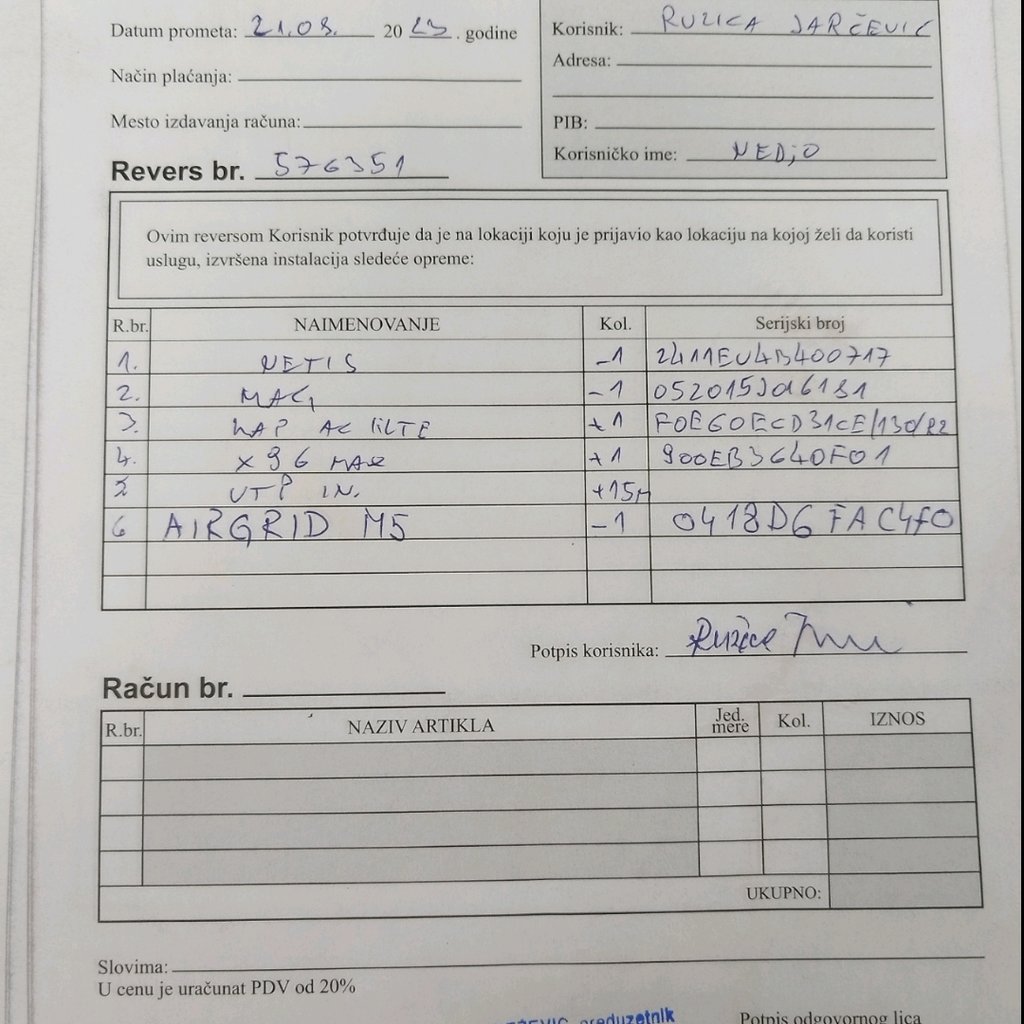 Datum prometa: 21.08. 20 23. godine
Način plaćanja:
Mesto izdavanja računa:
Korisnik: RUZICA JARČEVIĆ
Adresa:
PIB:
Korisničko ime: NEDJO
Revers br. 576351
Ovim reversom Korisnik potvrđuje da je na lokaciji koju je prijavio kao lokaciju na kojoj želi da koristi
uslugu, izvršena instalacija sledeće opreme:
R.br. NAIMENOVANJE Kol. Serijski broj
1. NETIS -1 2411EU4B400717
2. MAG -1
3. HAP AC LITE +1
4. X96 MAX +1 900EB3640F01
5 UTP IN. +15m
6 AIRGRID M5 -1 0418D6FAC4F0
Potpis korisnika: Ružica
Račun br.
R.br. NAZIV ARTIKLA Jed. mere Kol. IZNOS
UKUPNO:
Slovima:
U cenu je uračunat PDV od 20%
preduzetnik
Potpis odgovornog lica